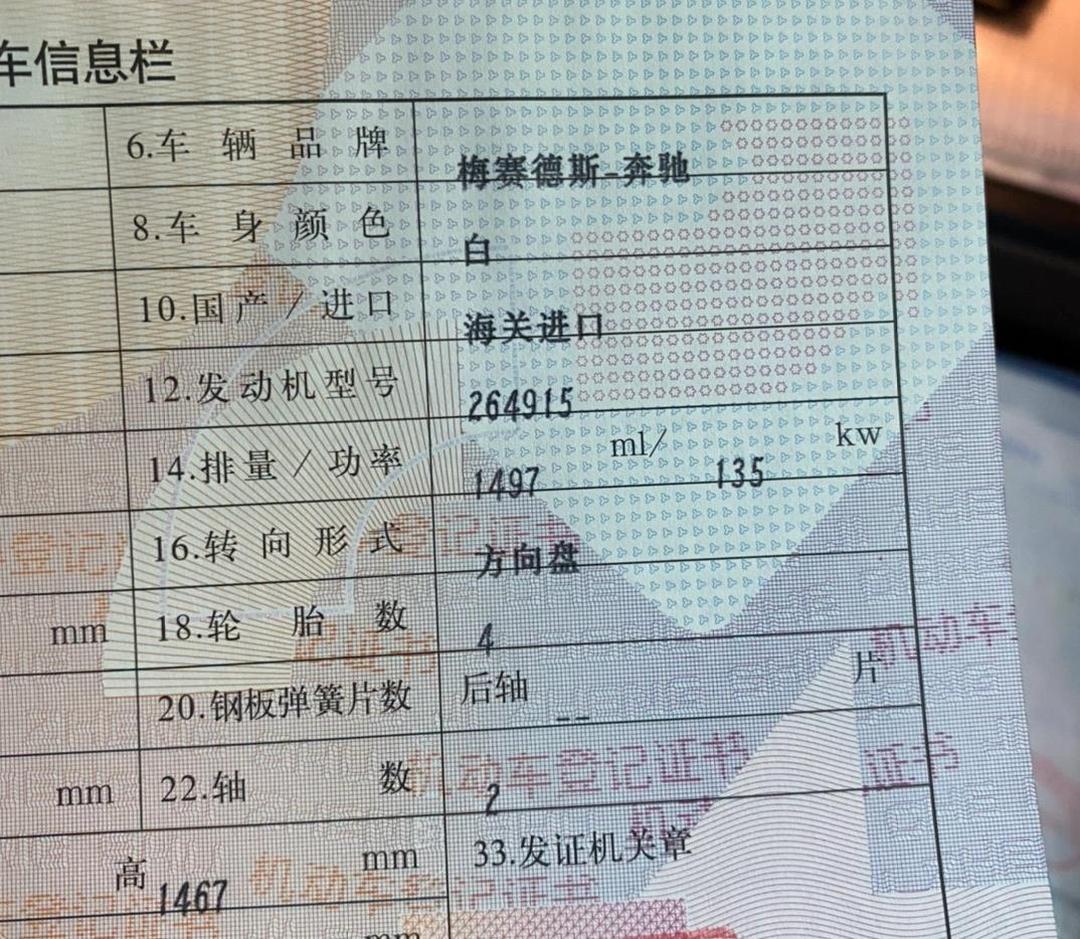 车信息栏
6.车辆品牌 梅赛德斯-奔驰
8.车身颜色 白
10.国产/进口 海关进口
12.发动机型号 264915
14.排量/功率 1497 ml/ 135 kw
16.转向形式 方向盘
mm 18.轮胎数 4
20.钢板弹簧片数 后轴 -- 片
mm 22.轴数 2
高 1467 mm 33.发证机关章
mm
机动车登记证书